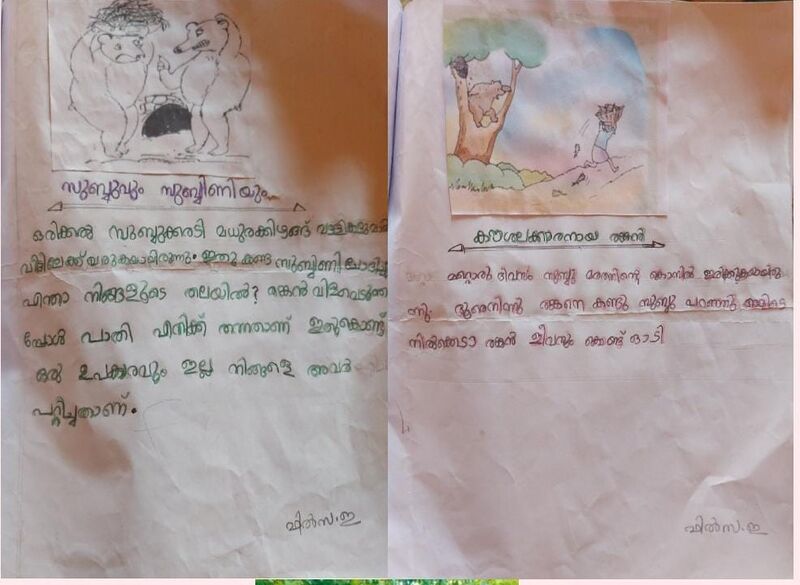 സുബ്ബുവും സുബ്ബിണിയും
ഒരിക്കൽ സുബ്ബുക്കരടി മധുരക്കിഴങ്ങ് വള്ളികളുമായി
വീട്ടിലേക്ക് വരുകയായിരുന്നു. ഇതു കണ്ട സുബ്ബിണി ചോദിച്ചു
എന്താ നിങ്ങളുടെ തലയിൽ? രങ്കൻ വിളവെടുത്ത
പ്പോൾ പാതി എനിക്ക് തന്നതാണ് ഇതുകൊണ്ട്
ഒരു ഉപകാരവും ഇല്ല നിങ്ങളെ അവർ
പറ്റിച്ചതാണ്.
ഫിൽസ.ഇ
കൗശലക്കാരനായ രങ്കൻ
മറ്റൊരു ദിവസം സുബ്ബു മരത്തിന്റെ കൊമ്പിൽ ഇരിക്കുകയായിരു
ന്നു. ദൂരുനിന്നു രങ്കനെ കണ്ടു സുബ്ബു പറഞ്ഞു അവിടെ
നിൽക്കെടാ രങ്കൻ ജീവനും കൊണ്ട് ഓടി
ഫിൽസ.ഇ